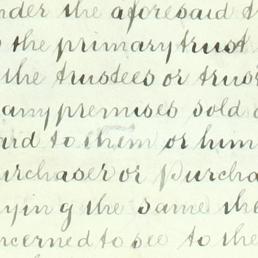 nder the aforesaid t
s the primary trust
the trustees or trust
any premises sold o
ard to them or him
urchaser or Purcha
ying the same the
ncerned to see to the